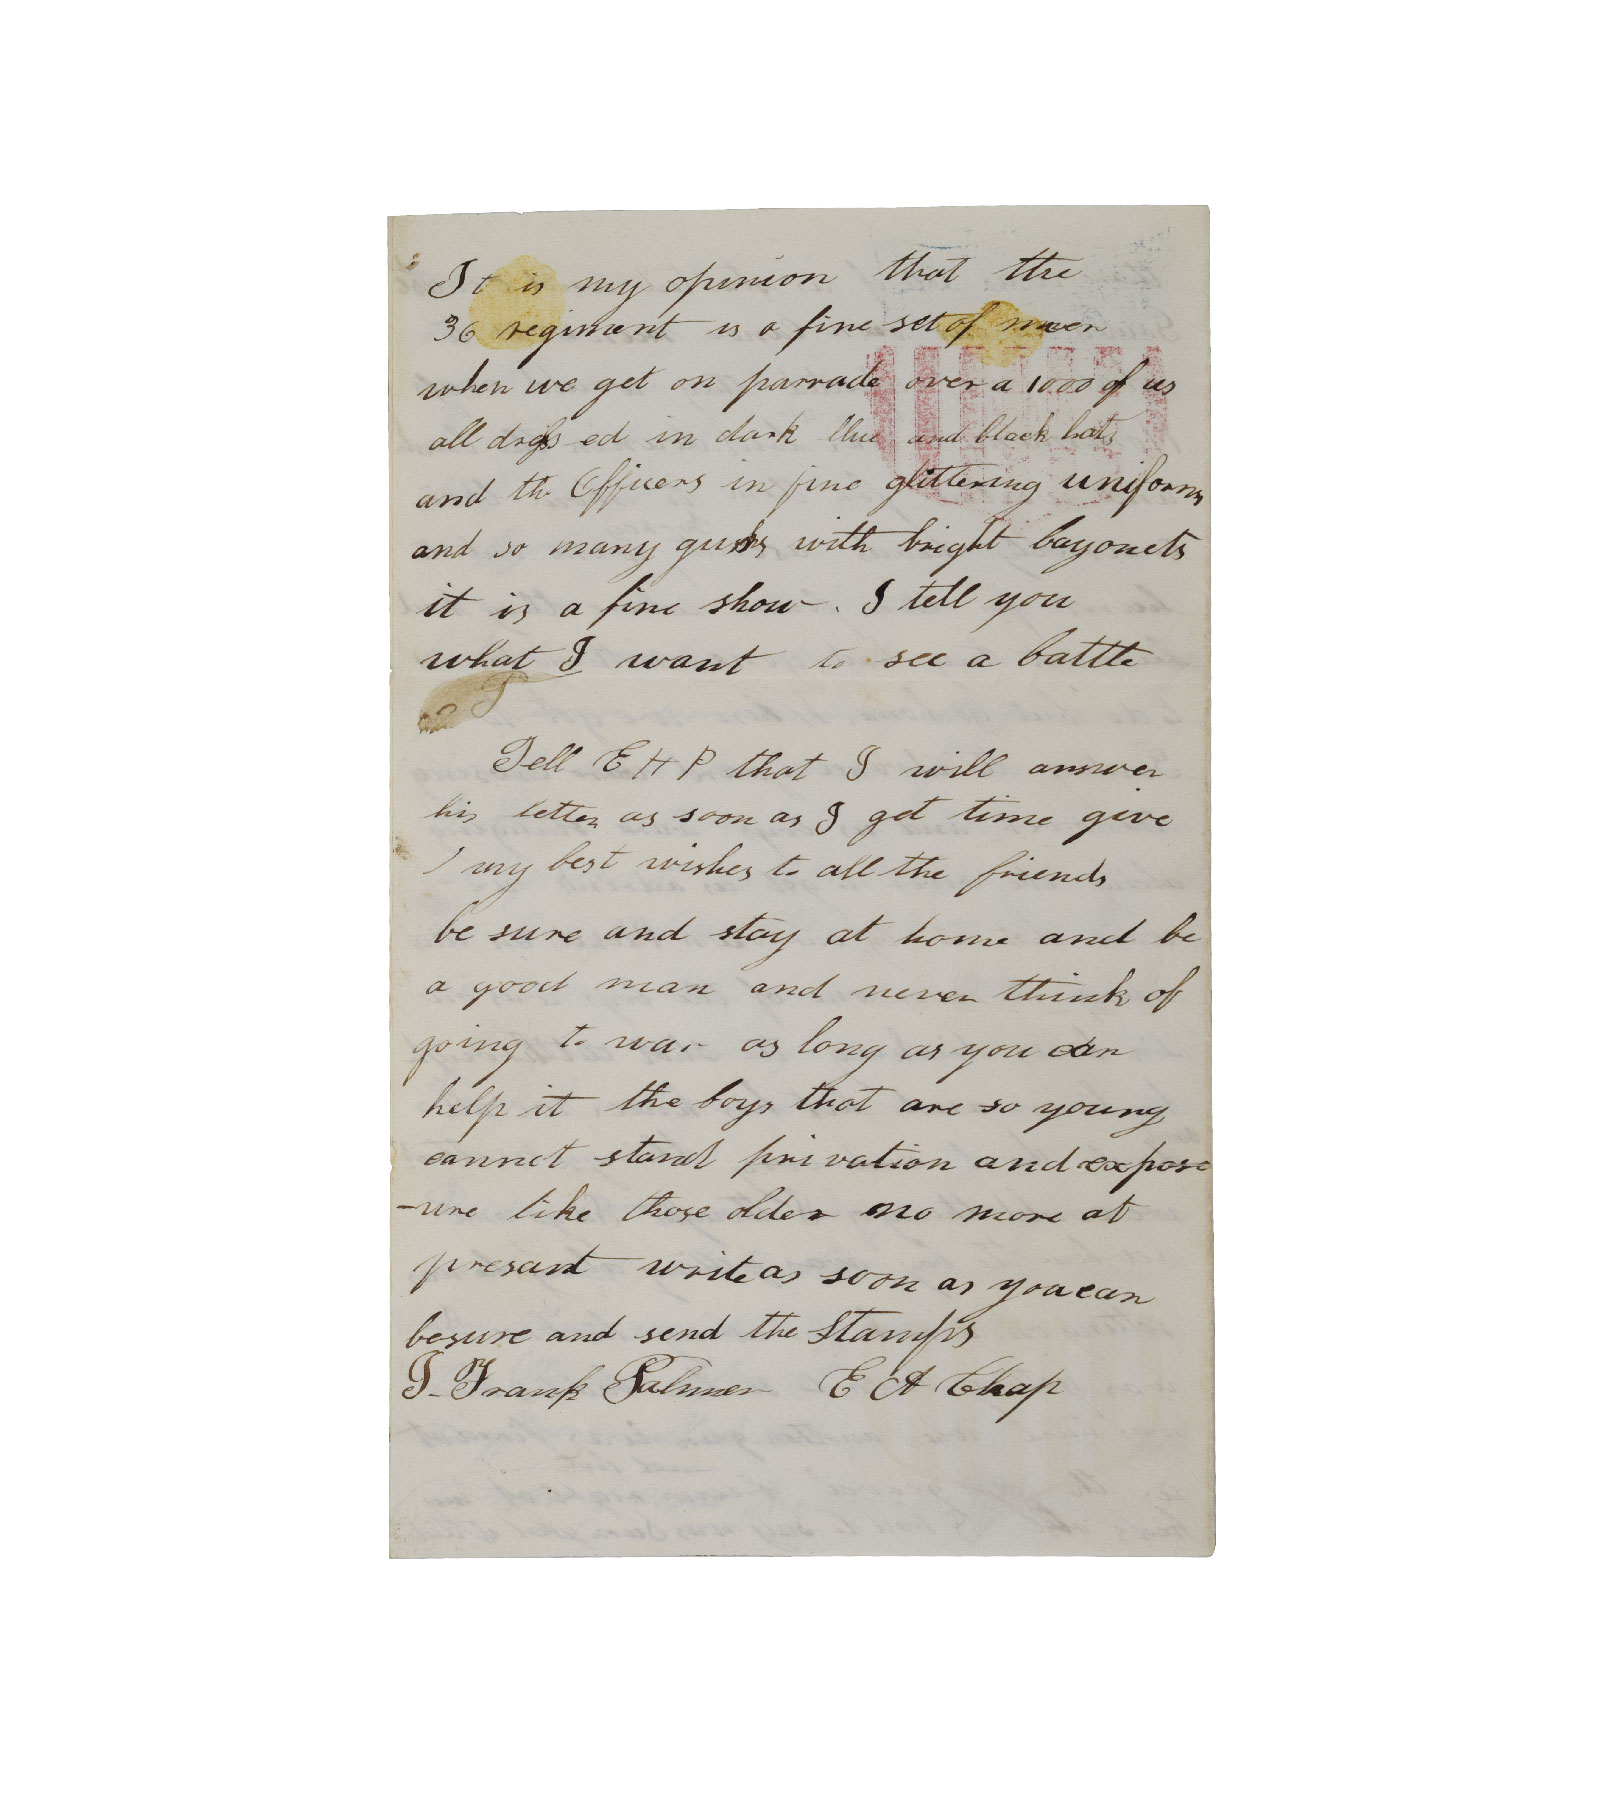 It is my opinion that the
36 regiment is a fine set of men
when we get on parrade over a 1000 of us
all dress ed in dark blue and black hats
and the Officers in fine glittering uniforms
and so many guns with bright bayonets
it is a fine show. I tell you
what I want to see a battle
Tell E H P that I will answer
his letter as soon as I get time give
my best wishes to all the friends
be sure and stay at home and be
a good man and never think of
going to war as long as you can
help it the boys that are so young
cannot stand privation and expose
-ure like those older no more at
presant write as soon as you can
besure and send the stamps
J. Frank Palmer E A Chap